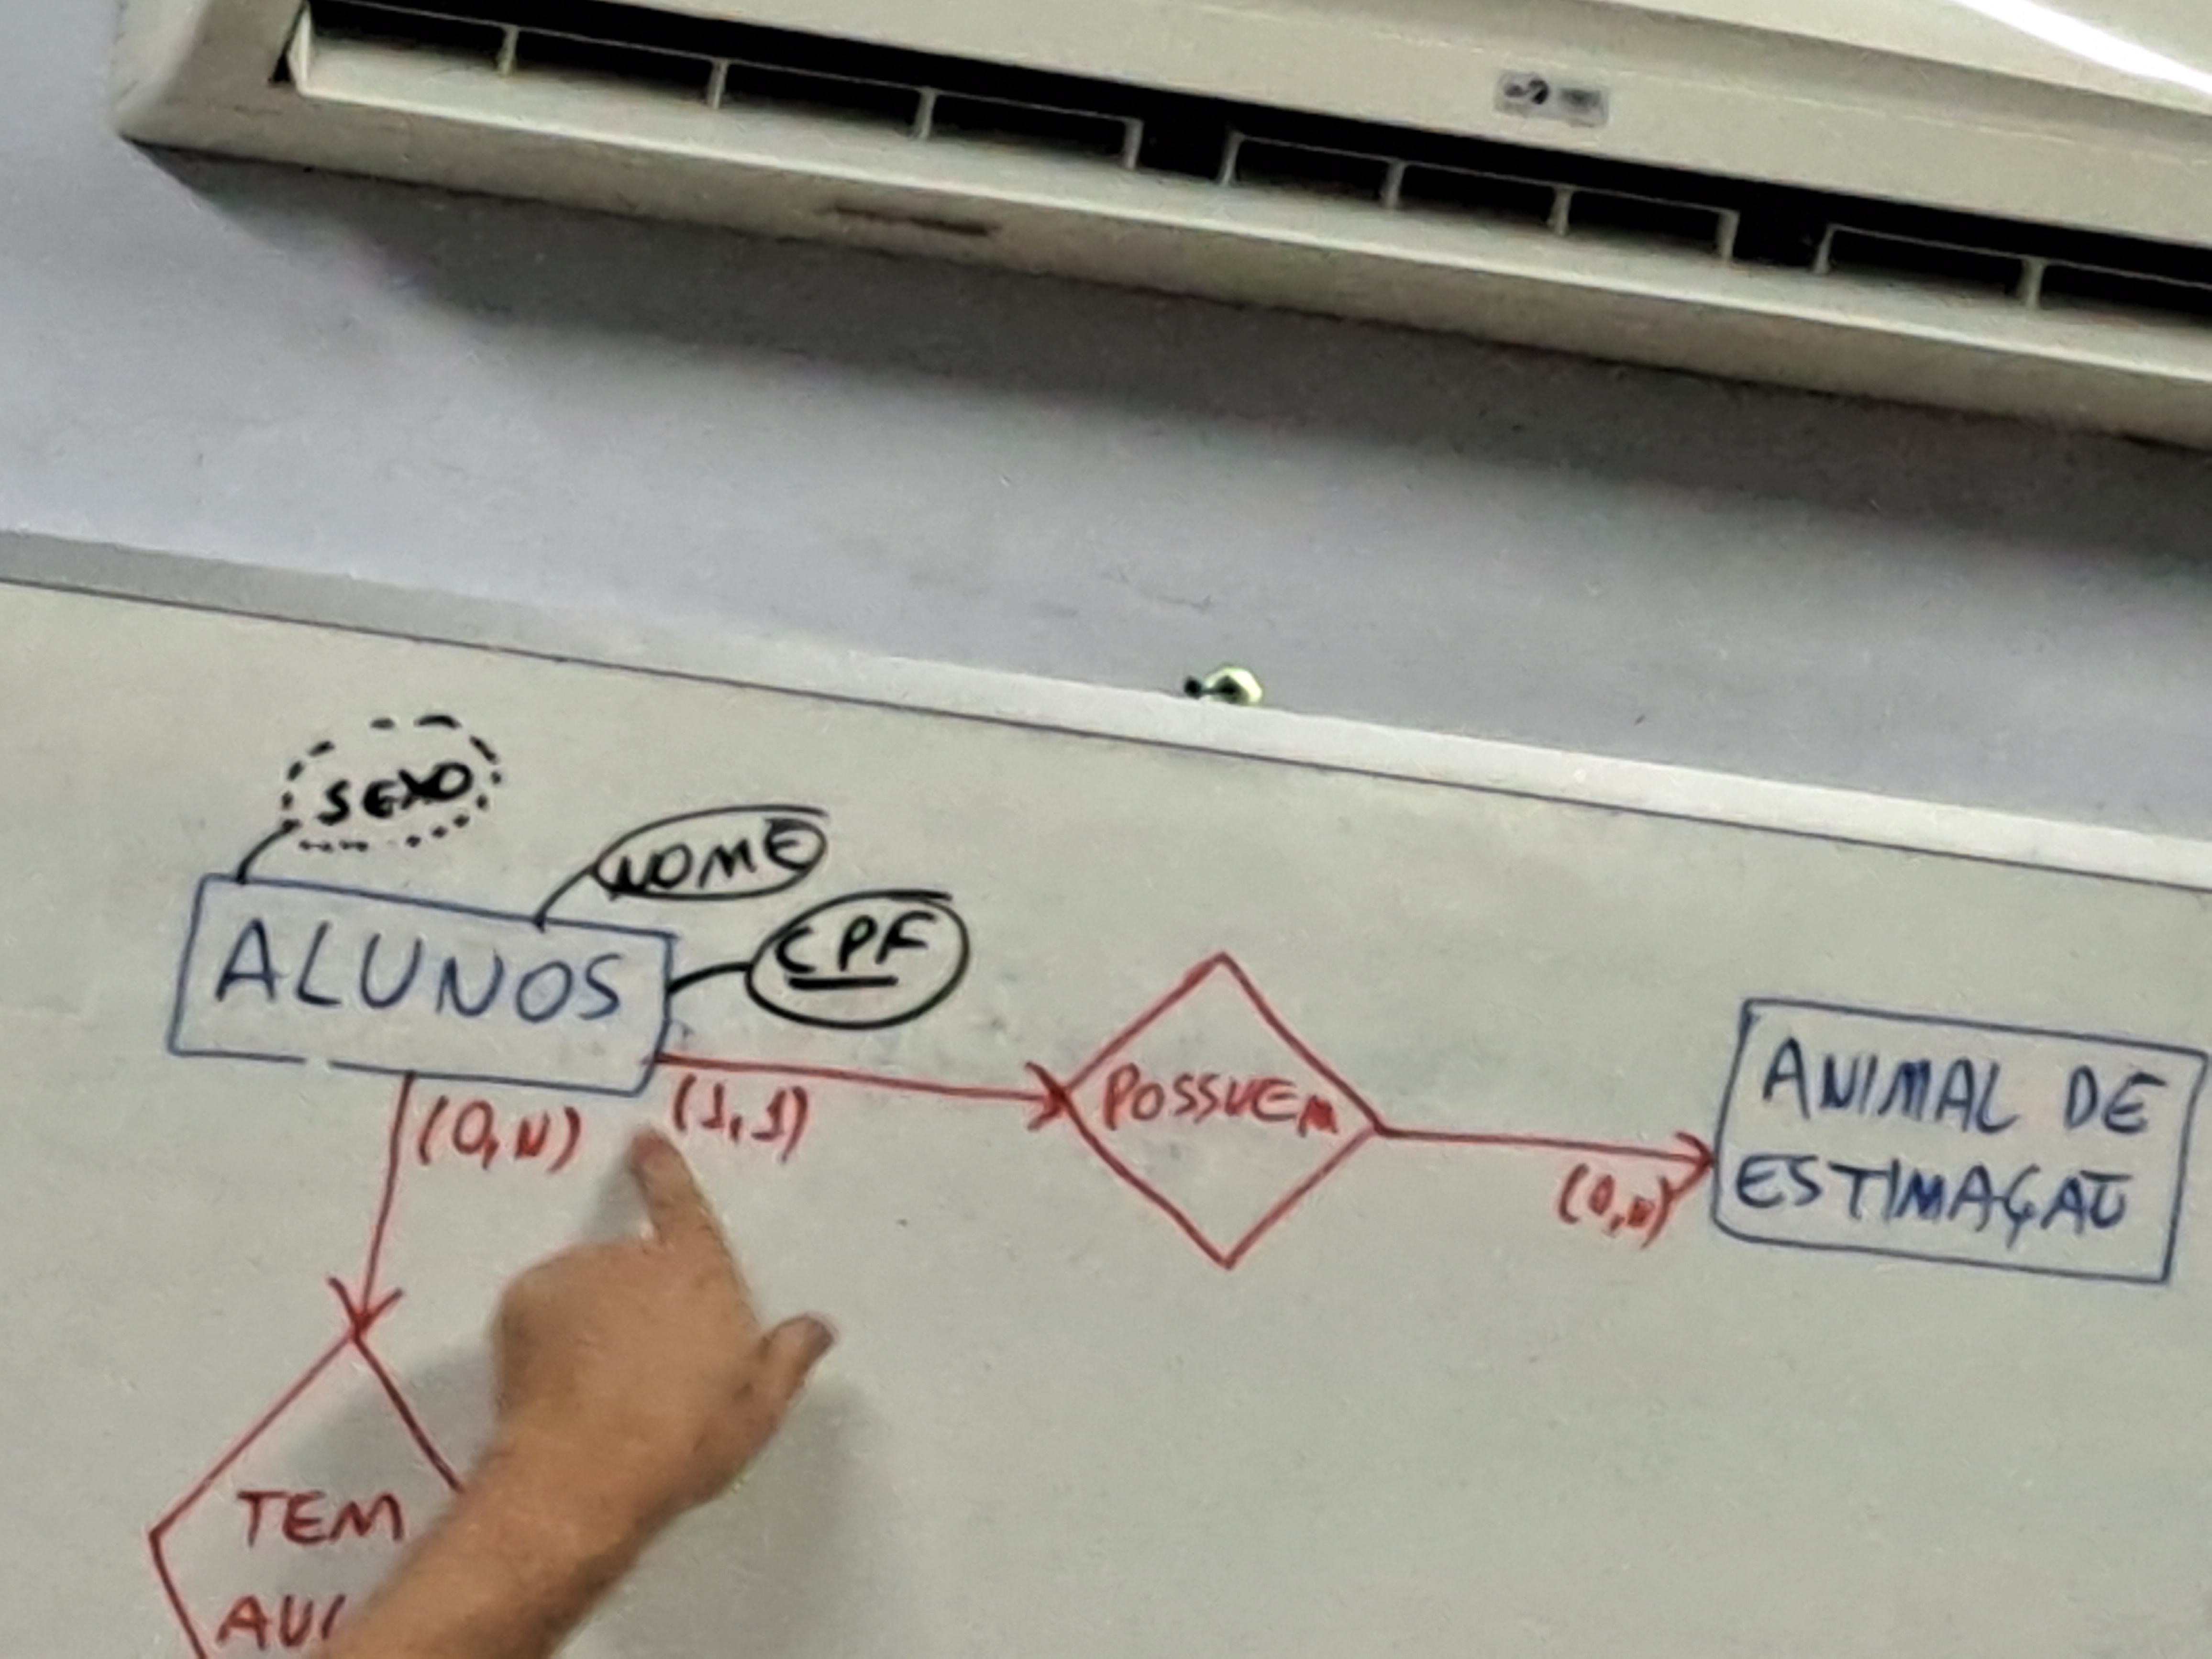 SEXO
NOME
CPF
ALUNOS
(0,N)
(1,1)
POSSUEM
(0,N)
ANIMAL DE
ESTIMAÇÃO
TEM